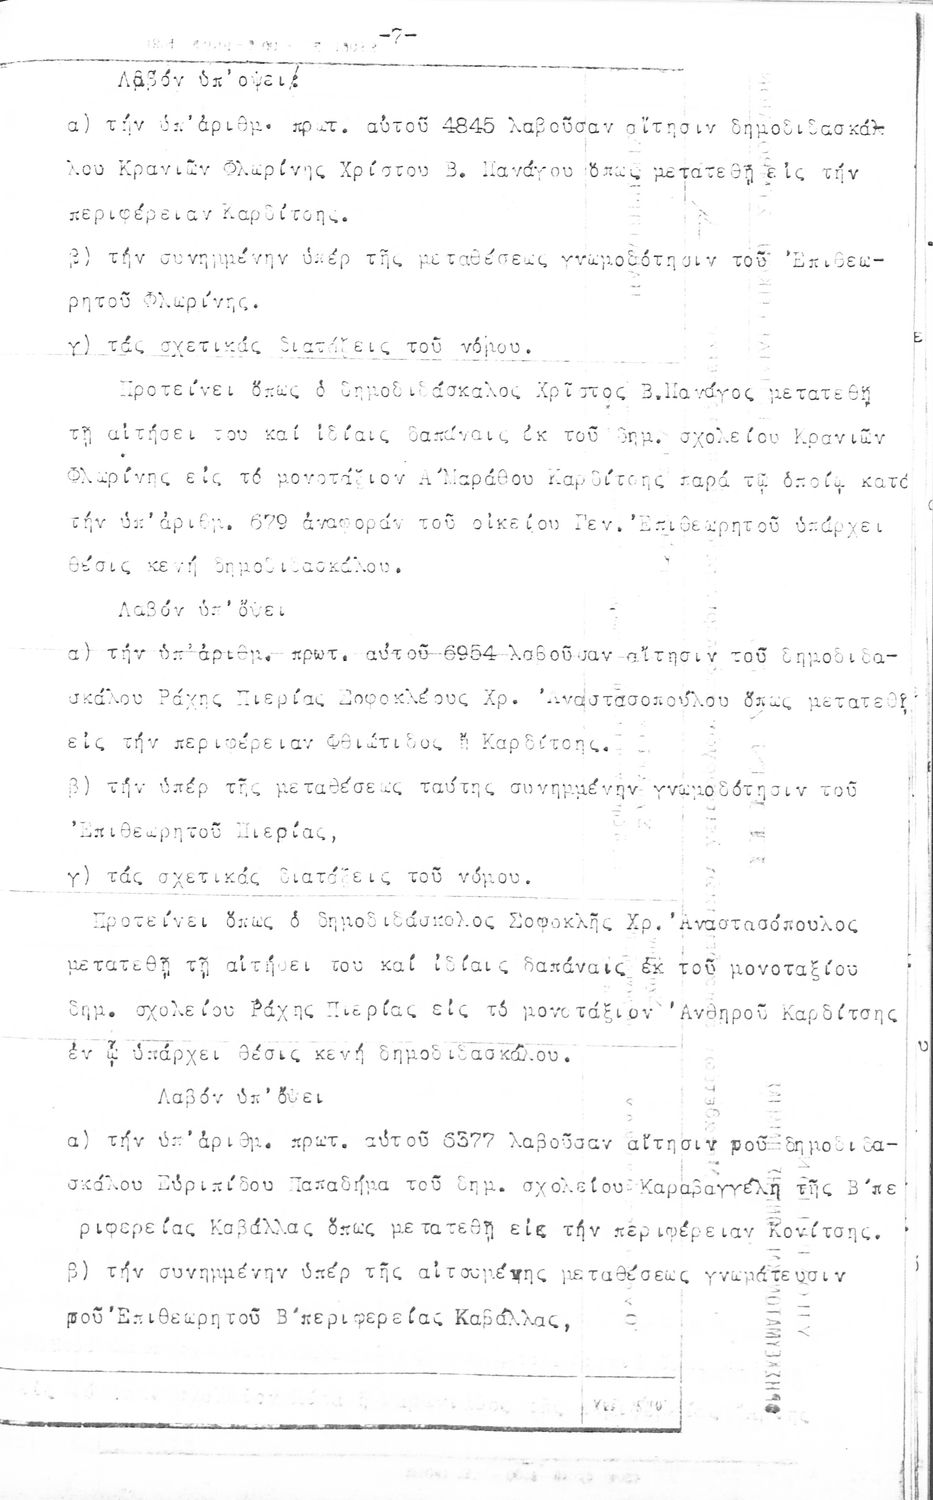 -7-
Λαβόν ὑπ'οψει:
α) τήν ὑπ'ἀριθμ. πρωτ. αὐτοῦ 4845 λαβοῦσαν αἴτησιν δημοδιδασκά-
λου Κρανιῶν Φλωρίνης Χρίστου Β. Πανάγου ὅπως μετατεθῇ εἰς τήν
περιφέρειαν Καρδίτσης.
β) τήν συνημμένην ὑπέρ τῆς μεταθέσεως γνωμοδότησιν τοῦ Ἐπιθεω-
ρητοῦ Φλωρίνης.
γ) τάς σχετικάς διατάξεις τοῦ νόμου.
Προτείνει ὅπως ὁ δημοδιδάσκαλος Χρῖστος Β.Πανάγος μετατεθῇ
τῇ αἰτήσει του καί ἰδίαις δαπάναις ἐκ τοῦ δημ. σχολείου Κρανιῶν
Φλωρίνης εἰς τό μονοτάξιον Α΄Μαράθου Καρδίτσης παρά τῷ ὁποίῳ κατά
τήν ὑπ'ἀριθμ. 679 ἀναφοράν τοῦ οἰκείου Γεν.Ἐπιθεωρητοῦ ὑπάρχει
θέσις κενή δημοδιδασκάλου.
Λαβόν ὑπ'ὄψει
α) τήν ὑπ'ἀριθμ. πρωτ. αὐτοῦ 6954 λαβοῦσαν αἴτησιν τοῦ δημοδιδα-
σκάλου Ράχης Πιερίας Σοφοκλέους Χρ. Ἀναστασοπούλου ὅπως μετατεθῇ
εἰς τήν περιφέρειαν Φθιώτιδος ἤ Καρδίτσης.
β) τήν ὑπέρ τῆς μεταθέσεως ταύτης συνημμένην γνωμοδότησιν τοῦ
Ἐπιθεωρητοῦ Πιερίας,
γ) τάς σχετικάς διατάξεις τοῦ νόμου.
Προτείνει ὅπως ὁ δημοδιδάσκολος Σοφοκλῆς Χρ.Ἀναστασόπουλος
μετατεθῇ τῇ αἰτήσει του καί ἰδίαις δαπάναις ἐκ τοῦ μονοταξίου
δημ. σχολείου Ράχης Πιερίας εἰς τό μονοτάξιον Ἀνθηροῦ Καρδίτσης
ἐν ᾧ ὑπάρχει θέσις κενή δημοδιδασκάλου.
Λαβόν ὑπ'ὄψει
α) τήν ὑπ'ἀριθμ. πρωτ. αὐτοῦ 6377 λαβοῦσαν αἴτησιν ροῦ δημοδιδα-
σκάλου Εὐριπίδου Παπαδήμα τοῦ δημ. σχολείου Καραβαγγέλη τῆς Β΄πε
ριφερείας Καβάλλας ὅπως μετατεθῇ εἰς τήν περιφέρειαν Κονίτσης.
β) τήν συνημμένην ὑπέρ τῆς αἰτουμένης μεταθέσεως γνωμάτευσιν
ροῦ Ἐπιθεωρητοῦ Β΄περιφερείας Καβάλλας,